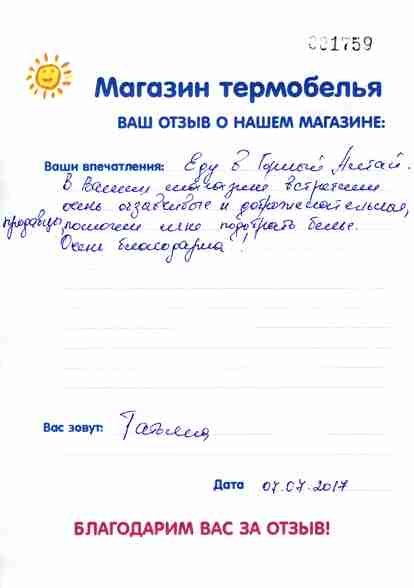 001759
Магазин термобелья
ВАШ ОТЗЫВ О НАШЕМ МАГАЗИНЕ:
Ваши впечатления: Еду в Горный Алтай.
В Вашем магазине встретили
очень отзывчивые и доброжелательные,
продавцы, помогли мне подобрать белье.
Очень благодарна!
Вас зовут: Татьяна
Дата 07.07.2017
БЛАГОДАРИМ ВАС ЗА ОТЗЫВ!